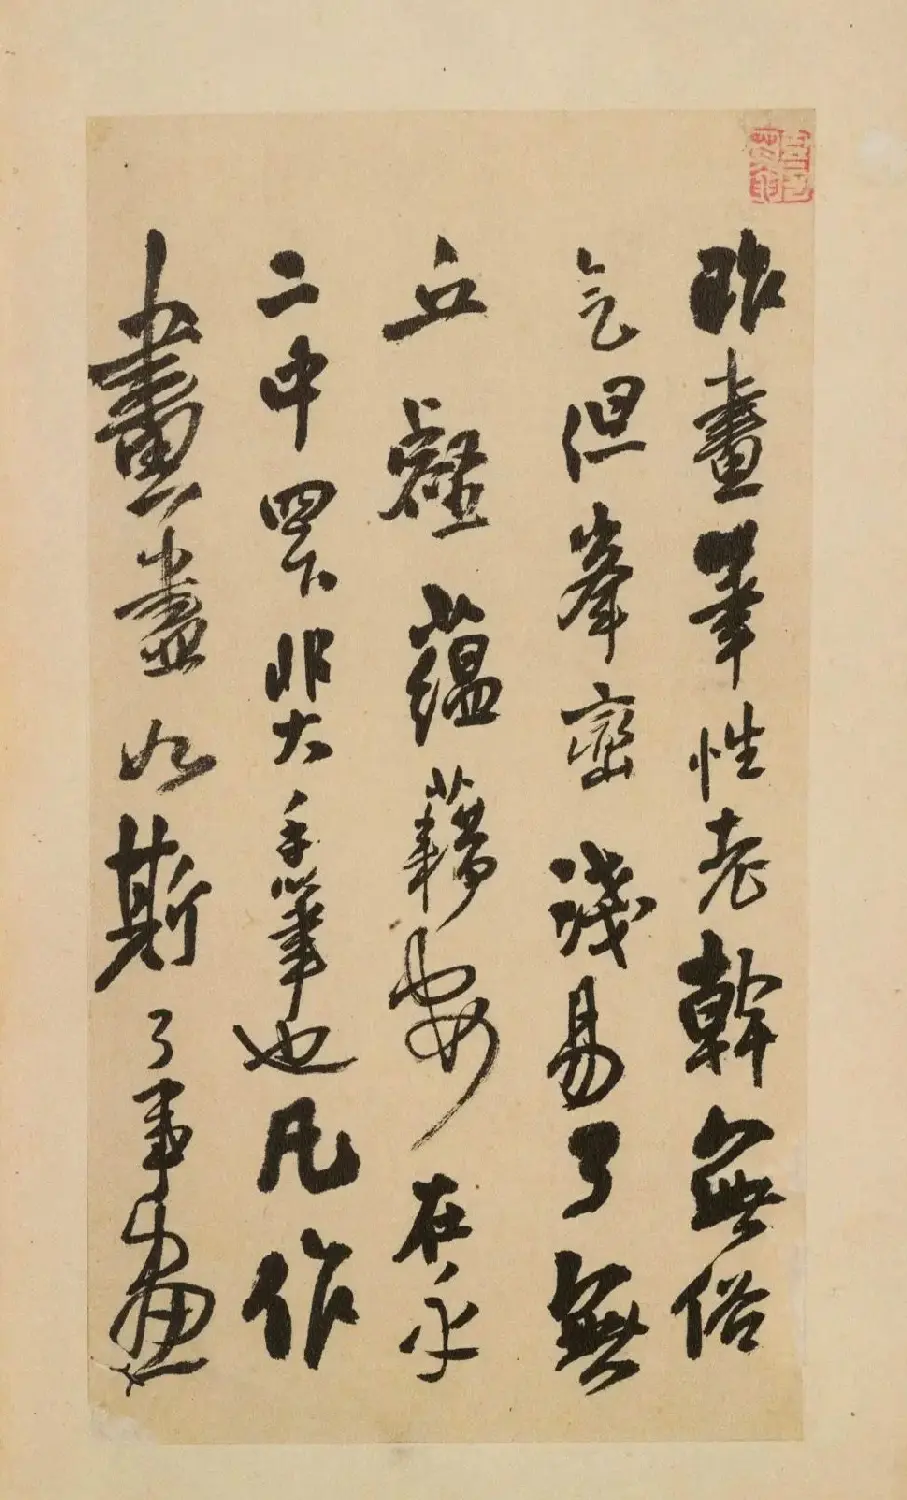 昨畫筆性老幹無俗
气但峯巒淺易了無
丘壑蘊藉要在乎
二中四下非大手筆也凡作
畫盡如斯了事畫